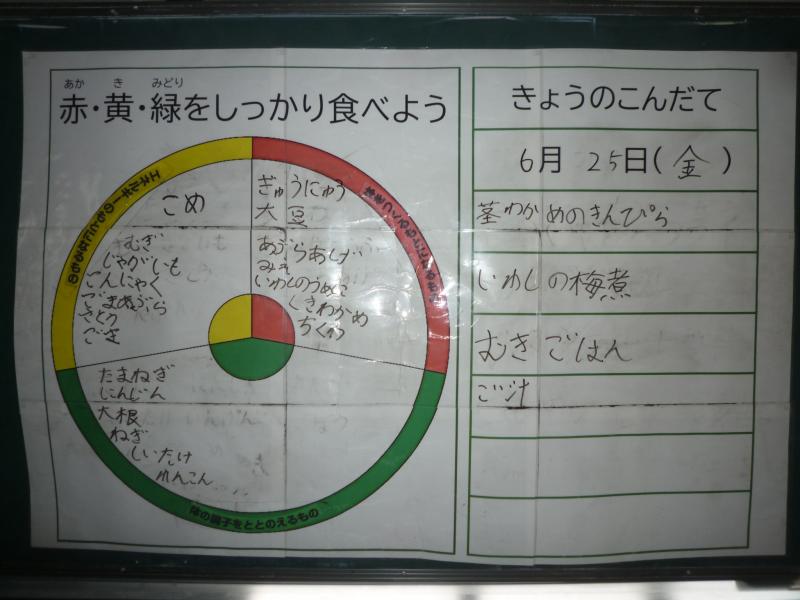 あか き みどり
赤・黄・緑をしっかり食べよう
エネルギーのもとになるもの
こめ
むぎ
じゃがいも
こんにゃく
ごまあぶら
さとう
ごま
体をつくるもとになるもの
ぎゅうにゅう
大豆
あぶらあげ
みそ
いわしのうめに
くきわかめ
ちくわ
たまねぎ
にんじん
大根
ねぎ
しいたけ
れんこん
体の調子をととのえるもの
きょうのこんだて
6月 25日(金)
茎わかめのきんぴら
いわしの梅煮
むぎごはん
ご汁